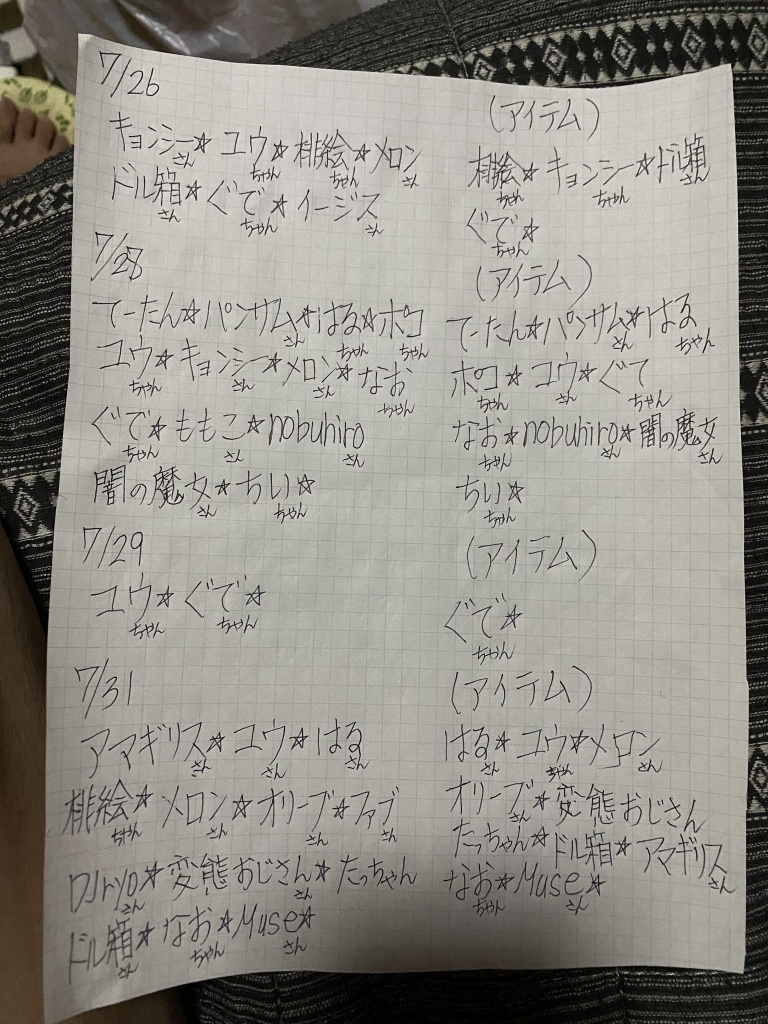 7/26
キョンシーさん☆ユウちゃん☆桃絵ちゃん☆メロンさん
ドル箱さん☆ぐでちゃん☆イージスさん
(アイテム)
桃絵ちゃん☆キョンシーちゃん☆ドル箱さん
ぐでちゃん☆
7/28
てーたん☆パンサムさん☆はるちゃん☆ポコちゃん
ユウちゃん☆キョンシーさん☆メロンさん☆なおちゃん
ぐでちゃん☆ももこさん☆nobuhiroさん
闇の魔女さん☆ちいちゃん☆
(アイテム)
てーたん☆パンサムさん☆はるちゃん
ポコちゃん☆ユウさん☆ぐてちゃん
なおちゃん☆nobuhiroさん☆闇の魔女さん
ちいちゃん☆
7/29
ユウちゃん☆ぐでちゃん☆
(アイテム)
ぐでちゃん☆
7/31
アマギリスさん☆ユウさん☆はるさん
桃絵ちゃん☆メロンさん☆オリーブさん☆ファブさん
DJryoさん☆変態おじさんさん☆たっちゃん
ドル箱さん☆なおちゃん☆Museさん☆
(アイテム)
はるさん☆ユウちゃん☆メロンさん
オリーブさん☆変態おじさん
たっちゃん☆ドル箱さん☆アマギリスさん
なおちゃん☆Museさん☆